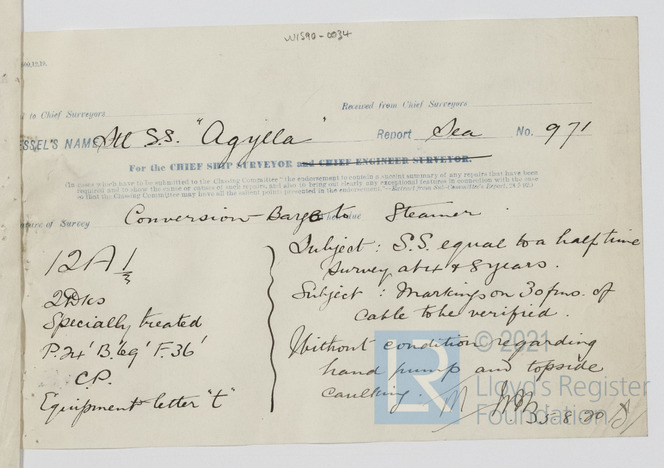 W1590-0034
to Chief Surveyors
Received from Chief Surveyors
VESSEL'S NAME Stl S.S. "Agylla" Report Sea No. 971
For the CHIEF SHIP SURVEYOR and CHIEF ENGINEER SURVEYOR.
(In cases which have to be submitted to the Classing Committee "the endorsement to contain a succint summary of any repairs that have been
required and to show the cause or causes of such repairs, and also to bring out clearly any exceptional features in connection with the case
so that the Classing Committee may have all the salient points presented in the endorsement."—Extract from Sub-Committee's Report,
Nature of Survey Conversion Barge to Steamer
12A 1/3
2Dks
Specially treated
P. 24' B. 69' F. 36'
C.P.
Equipment letter "t"
Subject: S.S. equal to a half time
survey at 4 & 8 years.
Subject: Markings on 30 fms. of
cable to be verified.
Without condition regarding
hand pump and topside
caulking.
8-20
© 2021
LR
Lloyd's Register
Foundation